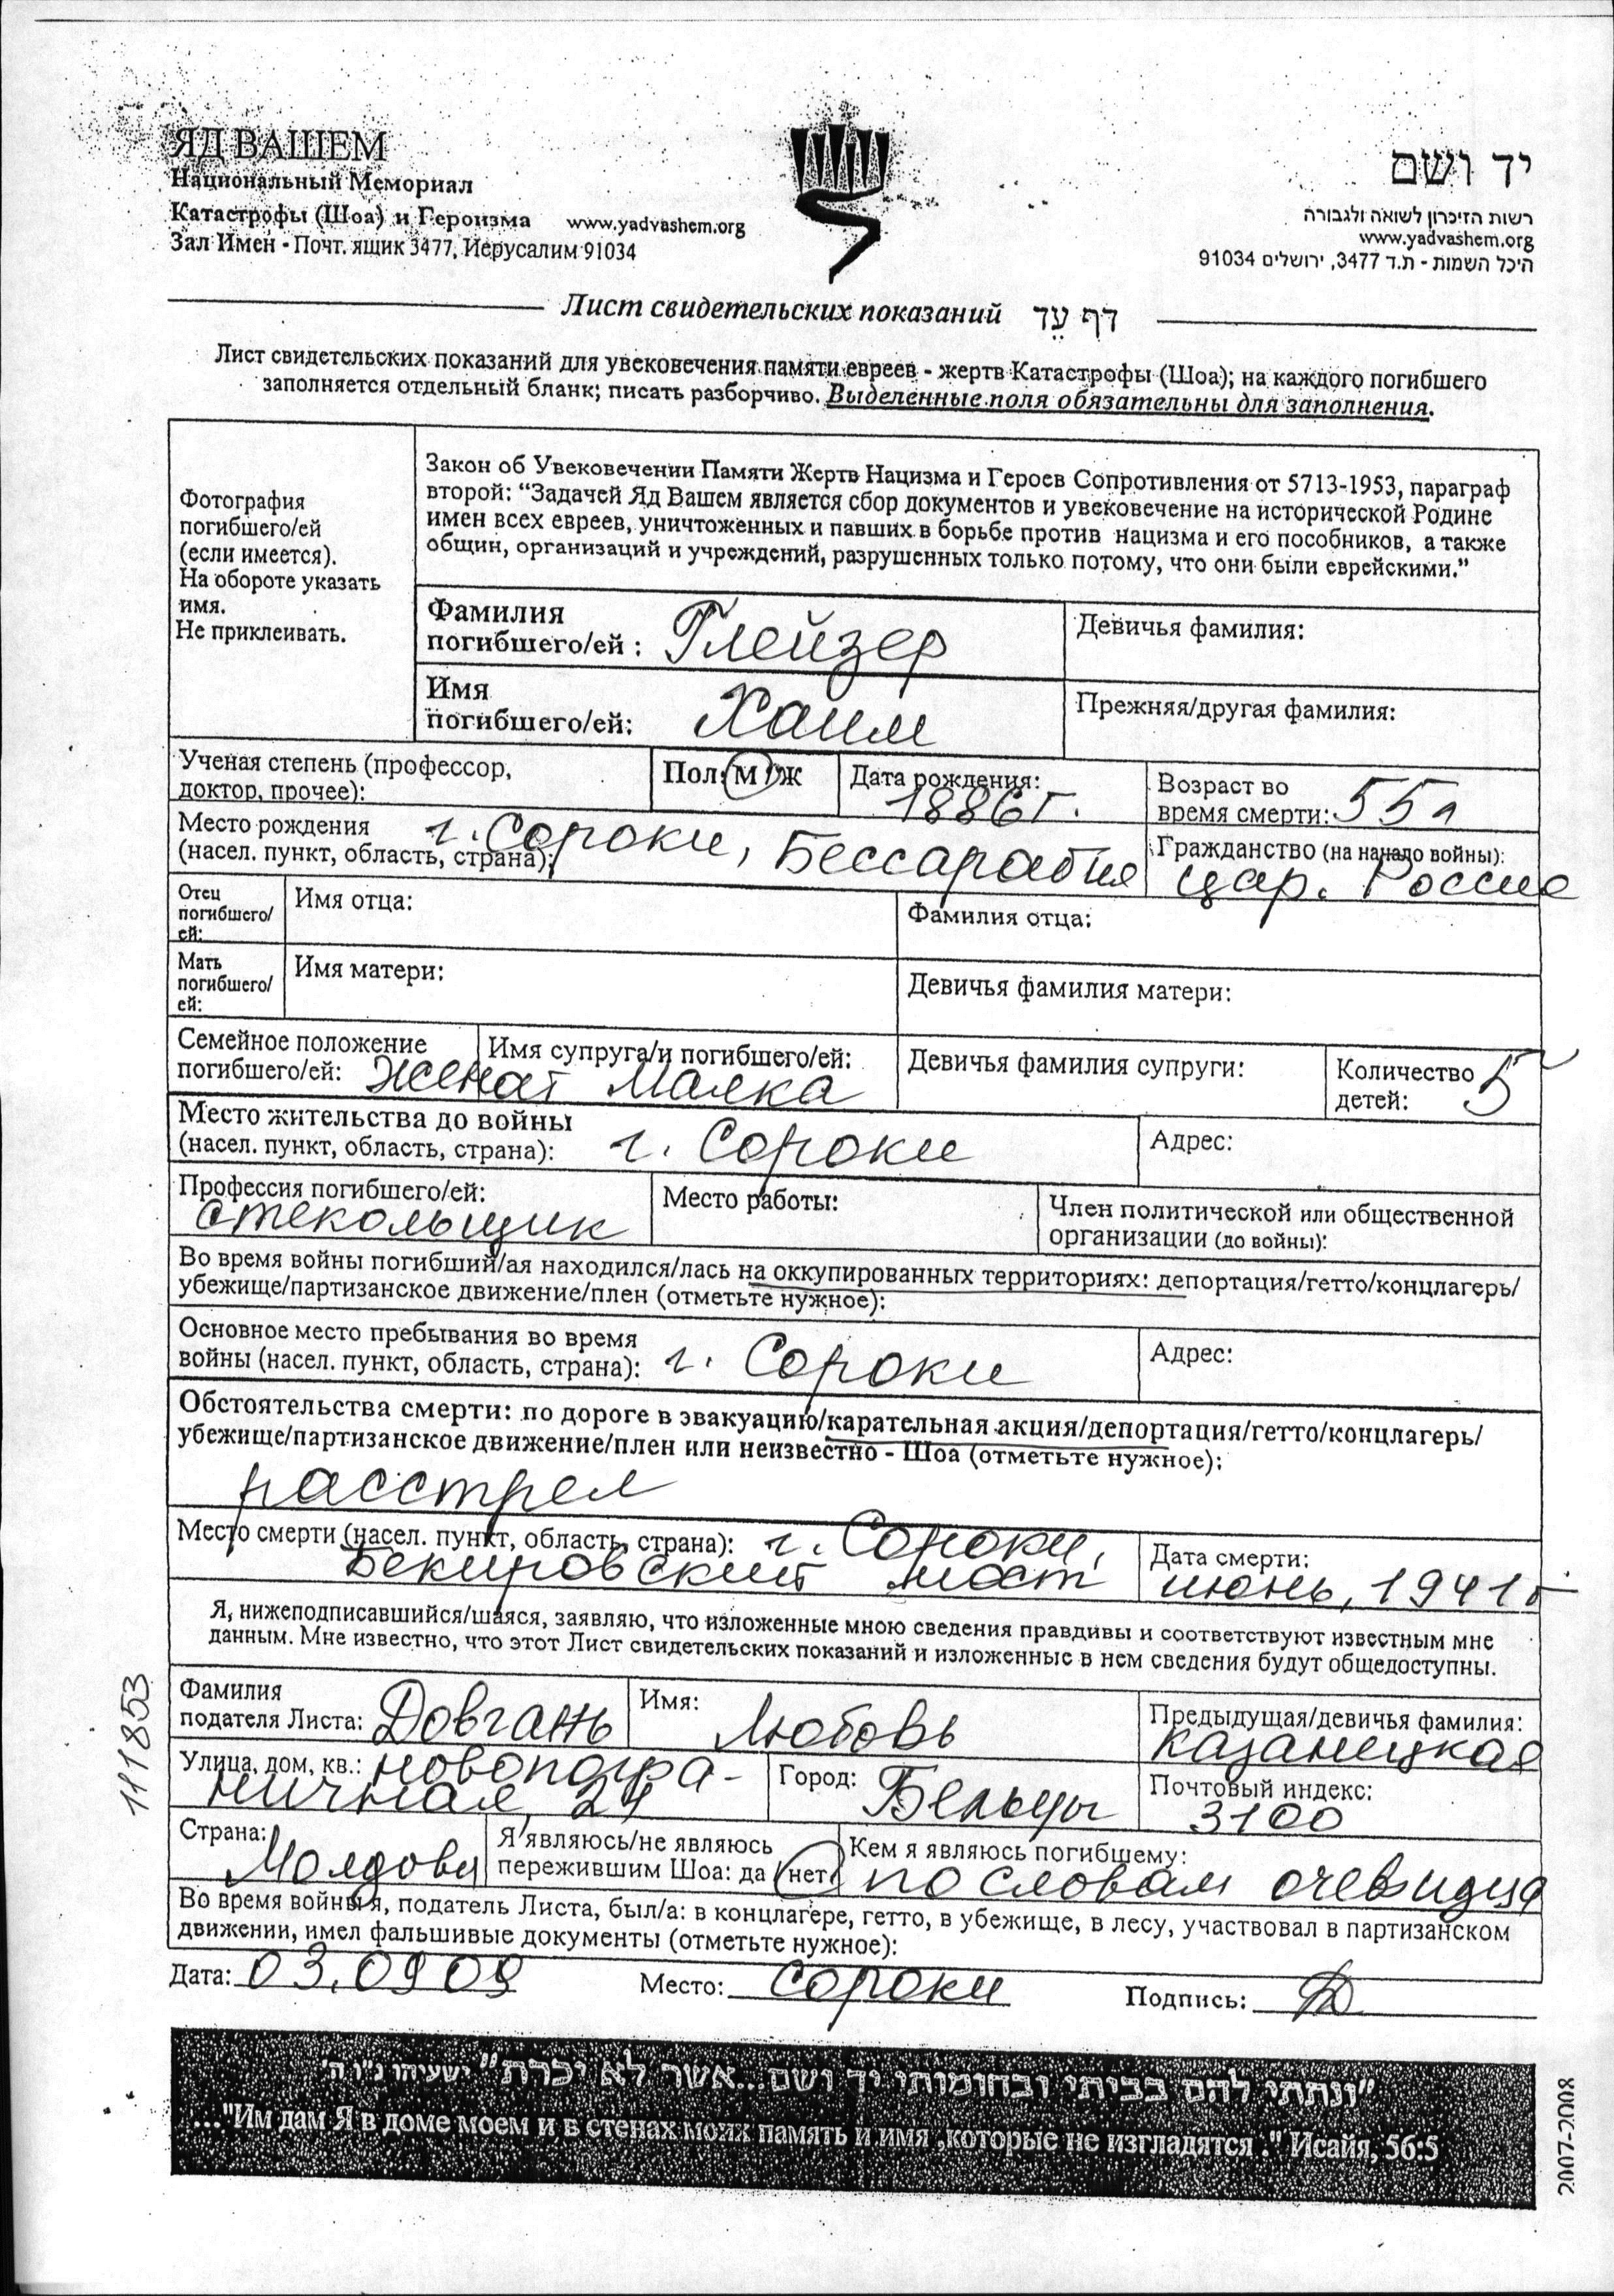 ЯД ВАШЕМ
Национальный Мемориал
Катастрофы (Шоа) и Героизма www.yadvashem.org
Зал Имен - Почт. ящик 3477, Иерусалим 91034
יד ושם
רשות הזיכרון לשואה ולגבורה
www.yadvashem.org
היכל השמות - ת.ד 3477, ירושלים 91034
Лист свидетельских показаний דף עֵד
Лист свидетельских показаний для увековечения памяти евреев - жертв Катастрофы (Шоа); на каждого погибшего
заполняется отдельный бланк; писать разборчиво. Выделенные поля обязательны для заполнения.
Фотография
погибшего/ей
(если имеется).
На обороте указать
имя.
Не приклеивать.
Закон об Увековечении Памяти Жертв Нацизма и Героев Сопротивления от 5713-1953, параграф
второй: “Задачей Яд Вашем является сбор документов и увековечение на исторической Родине
имен всех евреев, уничтоженных и павших в борьбе против нацизма и его пособников, а также
общин, организаций и учреждений, разрушенных только потому, что они были еврейскими.”
Фамилия
погибшего/ей : Глейзер
Девичья фамилия:
Имя
погибшего/ей: Хаим
Прежняя/другая фамилия:
Ученая степень (профессор,
доктор, прочее):
Пол: М / Ж
Дата рождения:
1886 г.
Возраст во
время смерти: 55 л
Место рождения
(насел. пункт, область, страна): г. Сороки, Бессарабия
Гражданство (на начало войны):
цар. Россия
Отец
погибшего/
ей:
Имя отца:
Фамилия отца:
Мать
погибшего/
ей:
Имя матери:
Девичья фамилия матери:
Семейное положение
погибшего/ей: женат
Имя супруга/и погибшего/ей:
Малка
Девичья фамилия супруги:
Количество
детей: 5
Место жительства до войны
(насел. пункт, область, страна): г. Сороки
Адрес:
Профессия погибшего/ей:
стекольщик
Место работы:
Член политической или общественной
организации (до войны):
Во время войны погибший/ая находился/лась на оккупированных территориях: депортация/гетто/концлагерь/
убежище/партизанское движение/плен (отметьте нужное):
Основное место пребывания во время
войны (насел. пункт, область, страна): г. Сороки
Адрес:
Обстоятельства смерти: по дороге в эвакуацию/карательная акция/депортация/гетто/концлагерь/
убежище/партизанское движение/плен или неизвестно - Шоа (отметьте нужное):
расстрел
Место смерти (насел. пункт, область, страна): г. Сороки,
Бекировский мост
Дата смерти:
июнь, 1941 г
Я, нижеподписавшийся/шаяся, заявляю, что изложенные мною сведения правдивы и соответствуют известным мне
данным. Мне известно, что этот Лист свидетельских показаний и изложенные в нем сведения будут общедоступны.
111853
Фамилия
подателя Листа: Довгань
Имя:
Любовь
Предыдущая/девичья фамилия:
Казанецкая
Улица, дом, кв.: новопогра-
ничная, 24
Город: Бельцы
Почтовый индекс:
3100
Страна:
Молдова
Я являюсь/не являюсь
пережившим Шоа: да / нет
Кем я являюсь погибшему:
по словам очевидца
Во время войны я, податель Листа, был/а: в концлагере, гетто, в убежище, в лесу, участвовал в партизанском
движении, имел фальшивые документы (отметьте нужное):
Дата: 03.09 09 Место: Сороки Подпись:
"ונתתי להם בביתי ובחומותי יד ושם...אשר לא יכרת" ישעיהו נ"ו ה'
..."Им дам Я в доме моем и в стенах моих память и имя ,которые не изгладятся ." Исайя, 56:5
2007-2008